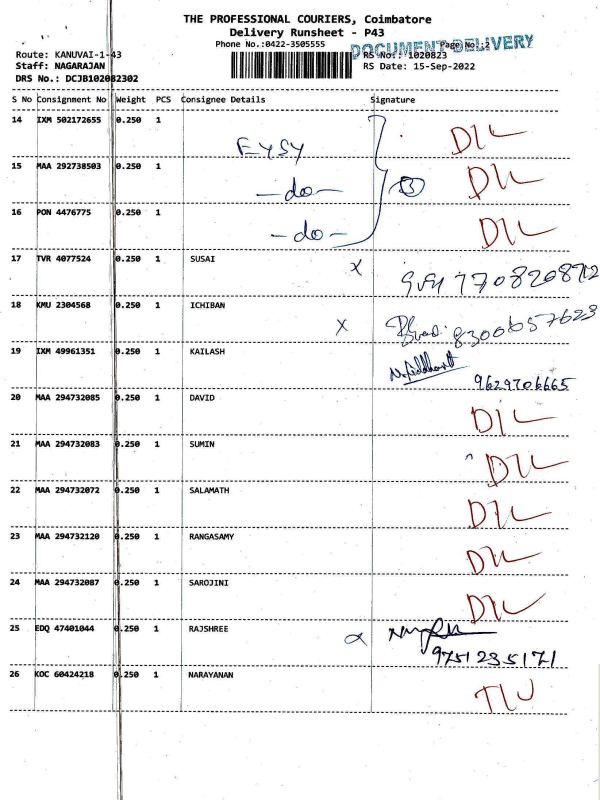 THE PROFESSIONAL COURIERS, Coimbatore
Delivery Runsheet - P43
Phone No.:0422-3505555
DOCUMENT DELIVERY
Page No.:2
Route: KANUVAI-1-43
RS No.: 1020823
Staff: NAGARAJAN
RS Date: 15-Sep-2022
DRS No.: DCJB102082302
S No Consignment No Weight PCS Consignee Details Signature
14 IXM 502172655 0.250 1
15 MAA 292738503 0.250 1 -do- 3
16 PON 4476775 0.250 1 -do-
17 TVR 4077524 0.250 1 SUSAI x
18 KMU 2304568 0.250 1 ICHIBAN x 8300657623
19 IXM 49961351 0.250 1 KAILASH N. Siddharth
9629706665
20 MAA 294732085 0.250 1 DAVID
21 MAA 294732083 0.250 1 SUMIN
22 MAA 294732072 0.250 1 SALAMATH
23 MAA 294732120 0.250 1 RANGASAMY
24 MAA 294732087 0.250 1 SAROJINI
25 EDQ 47401044 0.250 1 RAJSHREE
9751235171
26 KOC 60424218 0.250 1 NARAYANAN